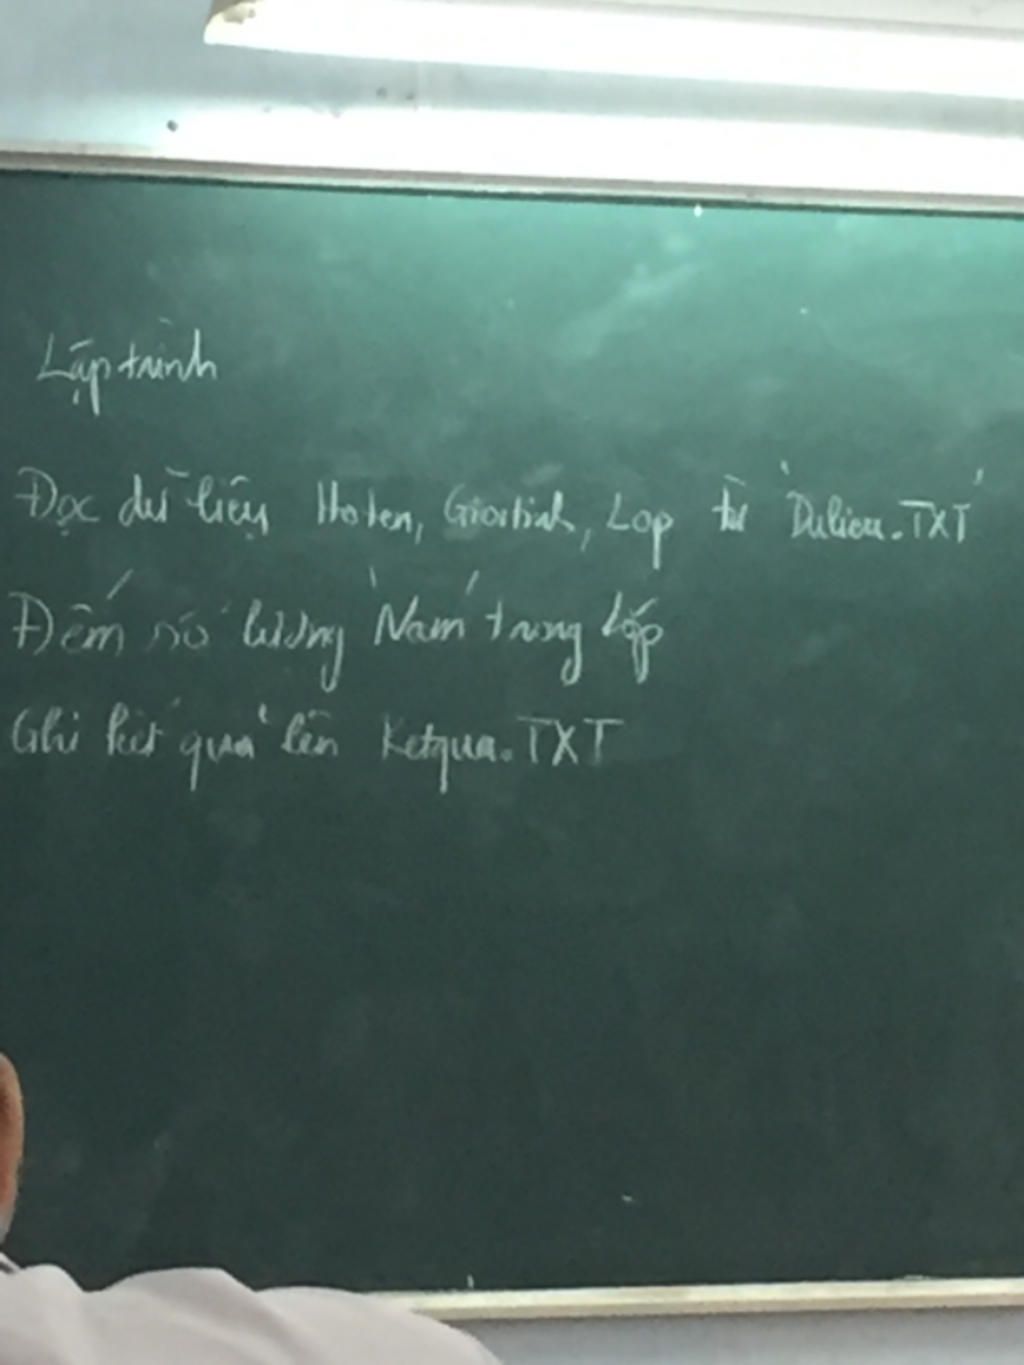 Lập trình
Đọc dữ liệu Hoten, Gioitinh, Lop từ 'Dulieu.TXT'
Đếm số lượng 'Nam' trong lớp
Ghi kết quả lên Ketqua.TXT